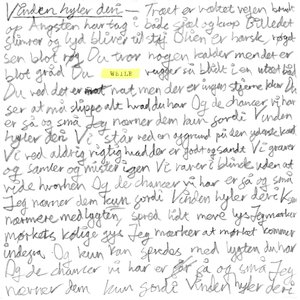 Vinden hyler deri — Træt er vaktet vejen brudt
op Angsten har tag i både sjæl og krop Billedet
flimrer og lyd bliver til støj Olien er harsk røget
sen blot røg Du tror nogen kalder men det er
blot gråd Du WEILE vugger så blidt i en utæt båd
Du ved det er nat men der er ingen stjerne klar Du
ser at må slippe alt hvad du har Og de chancer vi har
er så og små Jeg nævner dem kun fordi Vinden
hyler deri Vi står ved en afgrund på den yderste kant
Vi ved aldrig rigtig hvad der er godt og sandt Vi graver
og samler og mister igen Vi raver i blinde uden at
vide hvorhen Og de chancer vi har er så og små
Jeg nævner dem kun fordi Vinden hyler deri Kom
nærmere med lygten, spred lidt mere lys Jeg mærker
mørkets kølige gys Jeg mærker at mørket kommer
indefra Og kun kan spredes med lygten du har
Og de chancer vi har er så og små Jeg
nævner dem kun fordi Vinden hyler deri